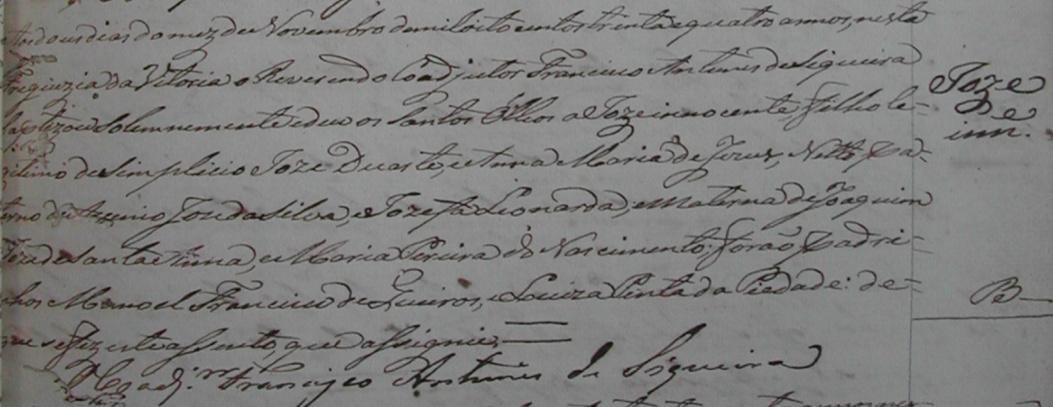 Aos dous dias do mez de Novembro de mil oito centos trinta e quatro annos, nesta
Freguezia da Vitoria o Reverendo Coadjutor Francisco Antunes de Siqueira
baptizou solemnemente e deu os Santos Oleos a Joze innocente, filho le-
gitimo de Simplicio Joze Duarte, e Anna Maria de Jezus, Netto Pa-
terno de José da Silva, e Jozefa Leonarda, e Materna de Joaquim
Joze de Santa Anna, e Maria Pereira do Nascimento: forão Padri-
nhos Manoel Francisco de Queiros, e Luiza Pinta da Piedade: de
que se fez este assento, que assignei.
O Coadj.or Francisco Antunes de Siqueira
Joze
inn.
B